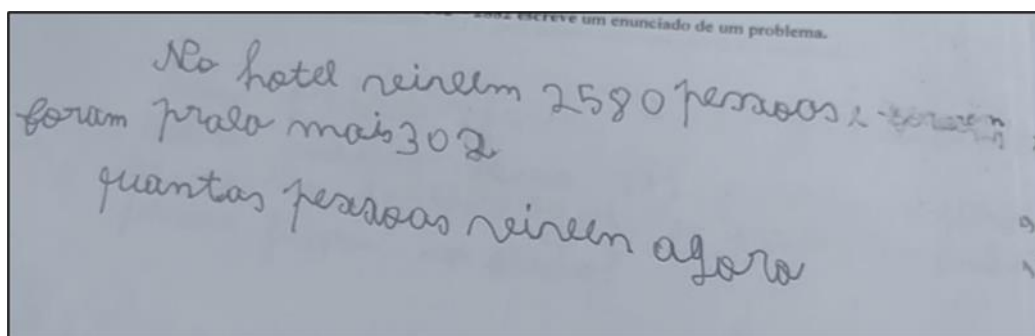 2882 escreve um enunciado de um problema.
No hotel reireem 2580 pessoas e
foram prala mais 302
quantas pessoas reireen agora